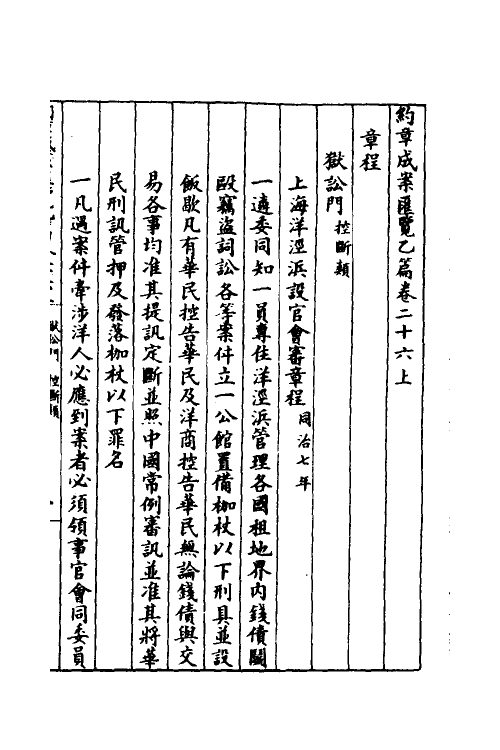 約章成案匯覽乙篇卷二十六上
章程
獄訟門 控斷類
上海洋涇浜設官會審章程 同治七年
一遴委同知一員專住洋涇浜管理各國租地界內錢債鬭
毆竊盜詞訟各等案件立一公館置備枷杖以下刑具並設
飯歇凡有華民控告華民及洋商控告華民無論錢債與交
易各事均准其提訊定斷並照中國常例審訊並准其將華
民刑訊管押及發落枷杖以下罪名
一凡遇案件牽涉洋人必應到案者必須領事官會同委員
獄訟門 控斷類